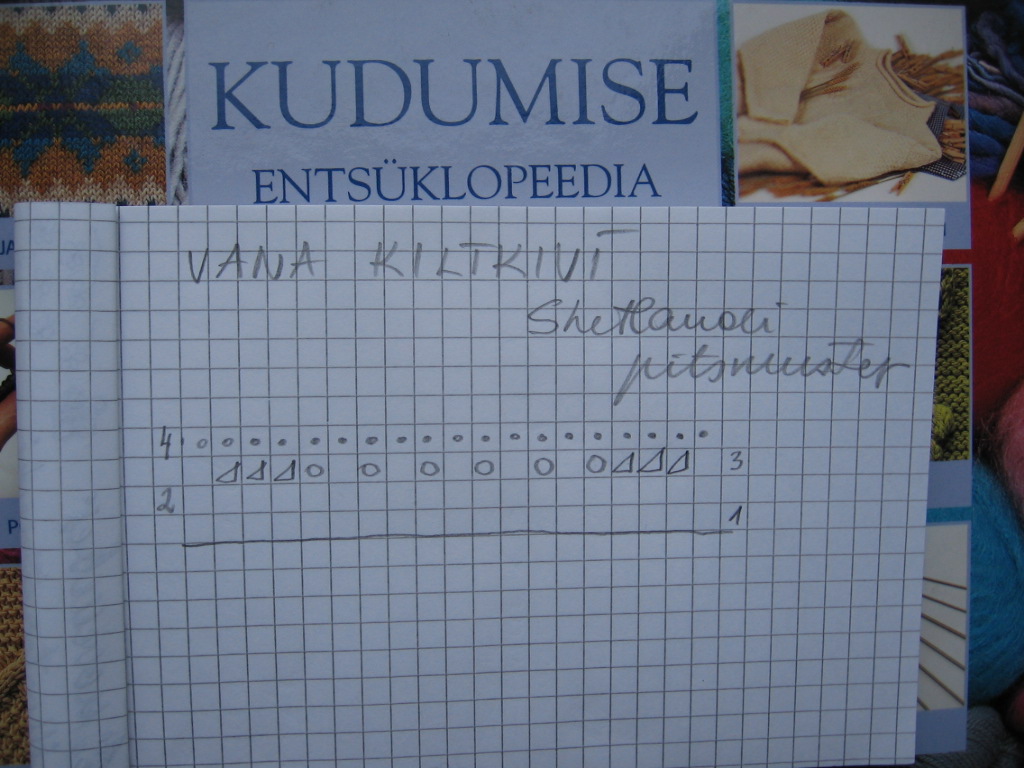 KUDUMISE
ENTSÜKLOPEEDIA
VANA KILTKIVI
Shetlandi
pitsmuster
4
3
2
1